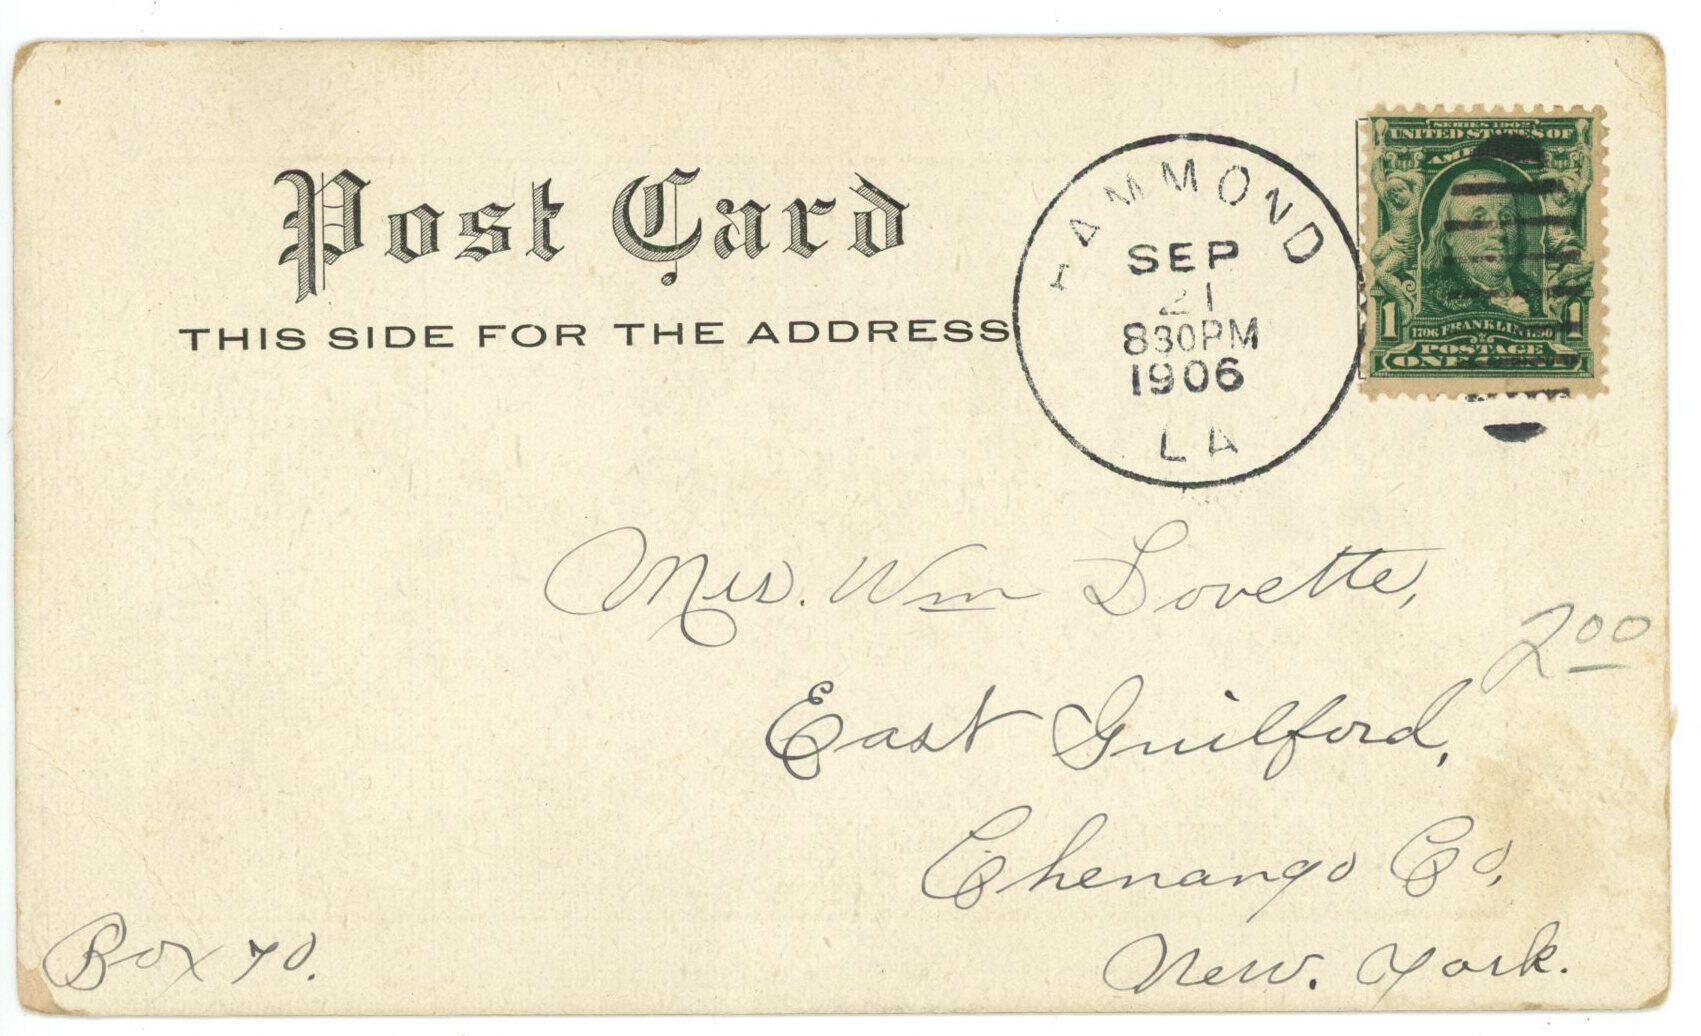 Post Card
THIS SIDE FOR THE ADDRESS
HAMMOND
SEP
21
830PM
1906
LA
SERIES 1902
UNITED STATES OF
AMERICA
1 1
1706 FRANKLIN 1790
POSTAGE
ONE CENT
Mrs. Wm Lovette,
2 00
East Guilford,
Chenango Co,
New. York.
Box 70.